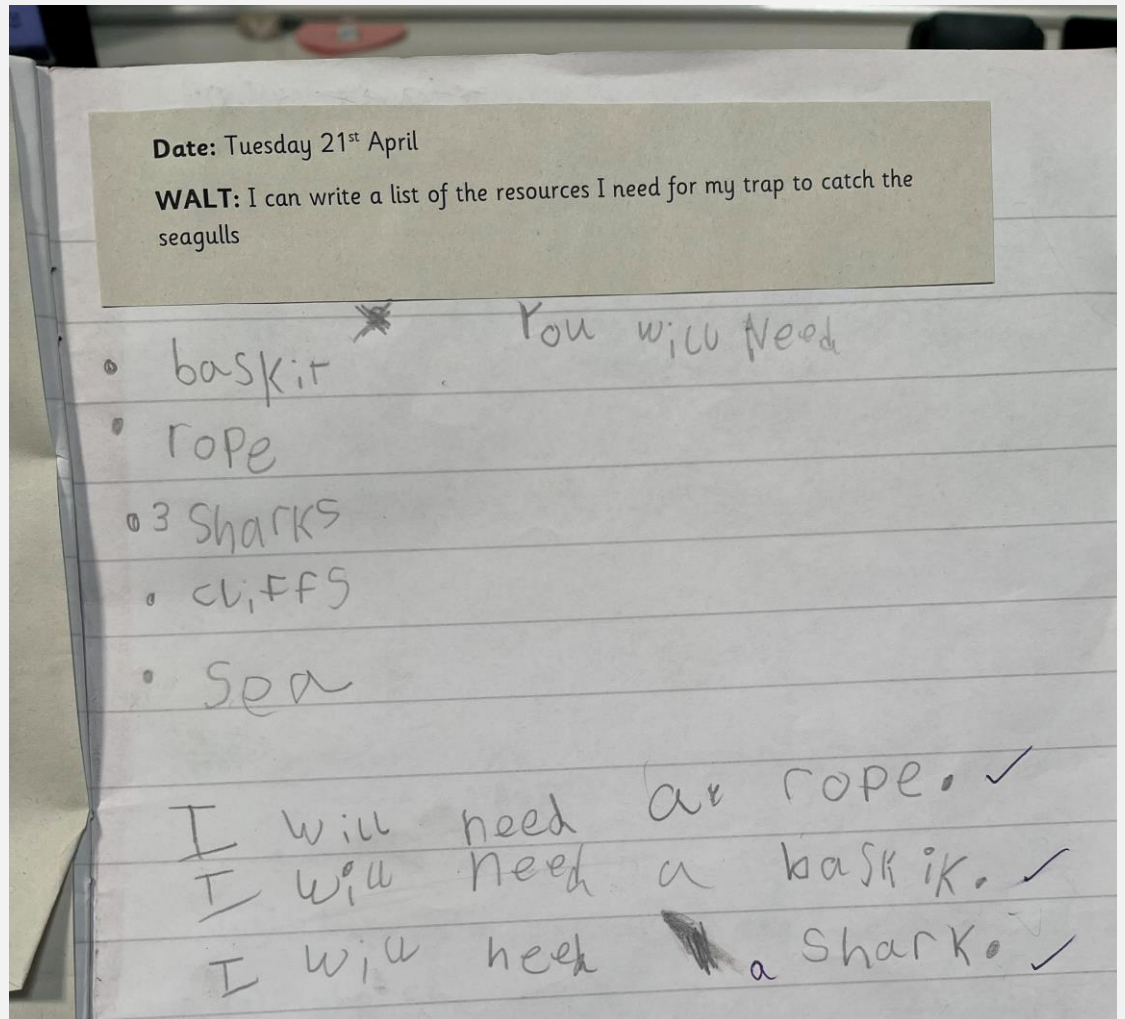 Date: Tuesday 21st April
WALT: I can write a list of the resources I need for my trap to catch the
seagulls
You will Need
• baskit
• rope
• 3 Sharks
• cliffs
• Sea
I will need a rope. ✓
I will need a baskik. ✓
I will need a shark. ✓